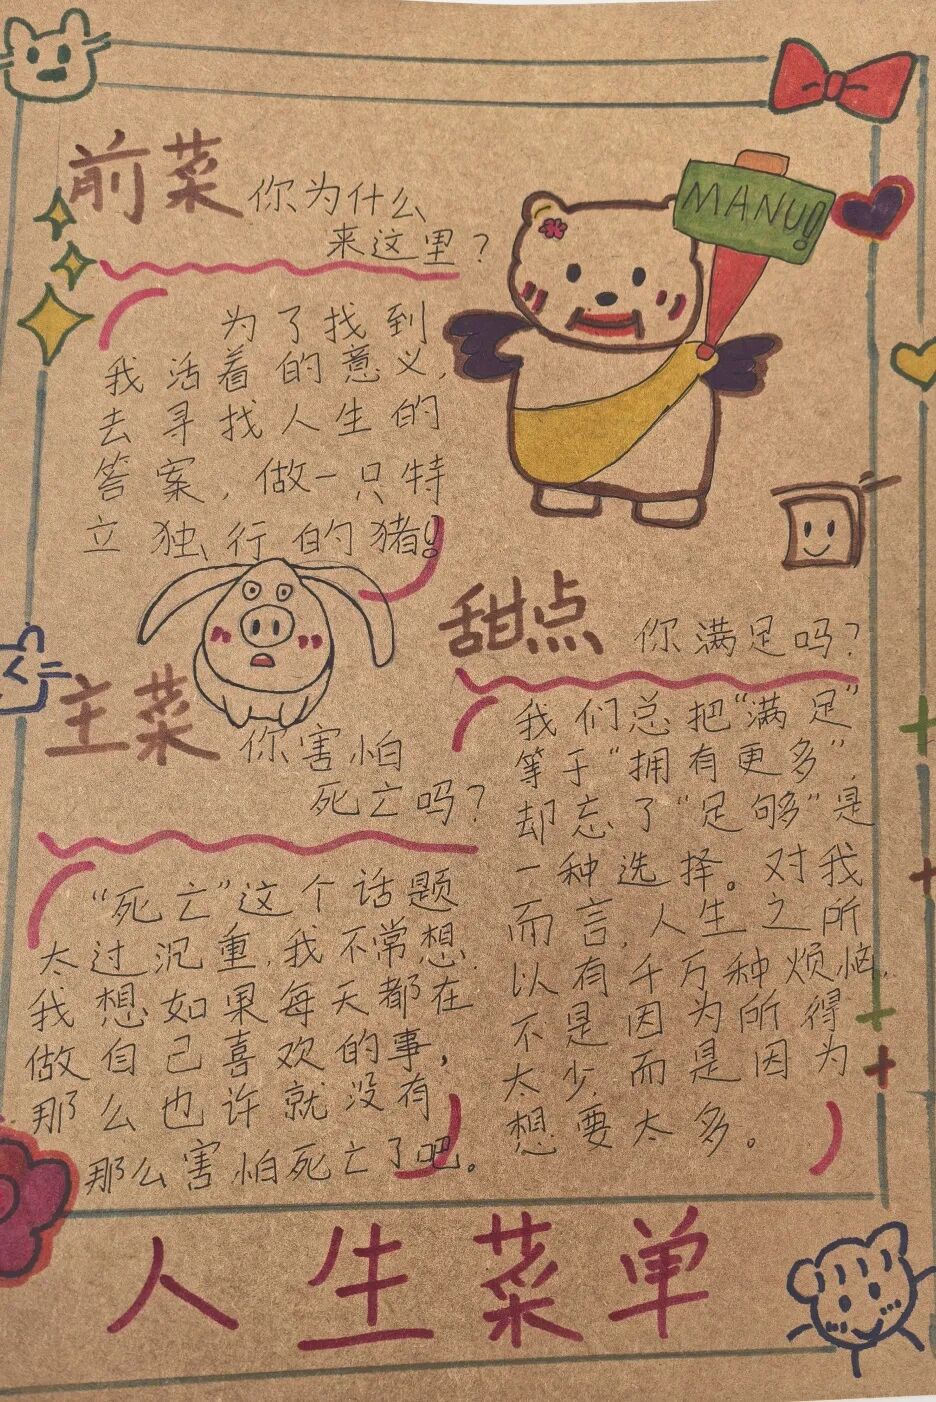 前菜 你为什么
来这里？
为了找到
我活着的意义，
去寻找人生的
答案，做一只特
立独行的猪！
MANU!
主菜 你害怕
死亡吗？
“死亡”这个话题
太过沉重，我不常想，
我想如果每天都在
做自己喜欢的事，
那么也许就没有
那么害怕死亡了吧。
甜点 你满足吗？
我们总把“满足”
等于“拥有更多”，
却忘了“足够”是
一种选择。对我
而言，人生之所
以有千万种烦恼，
不是因为所得
太少，而是因为
想要太多。
人生菜单